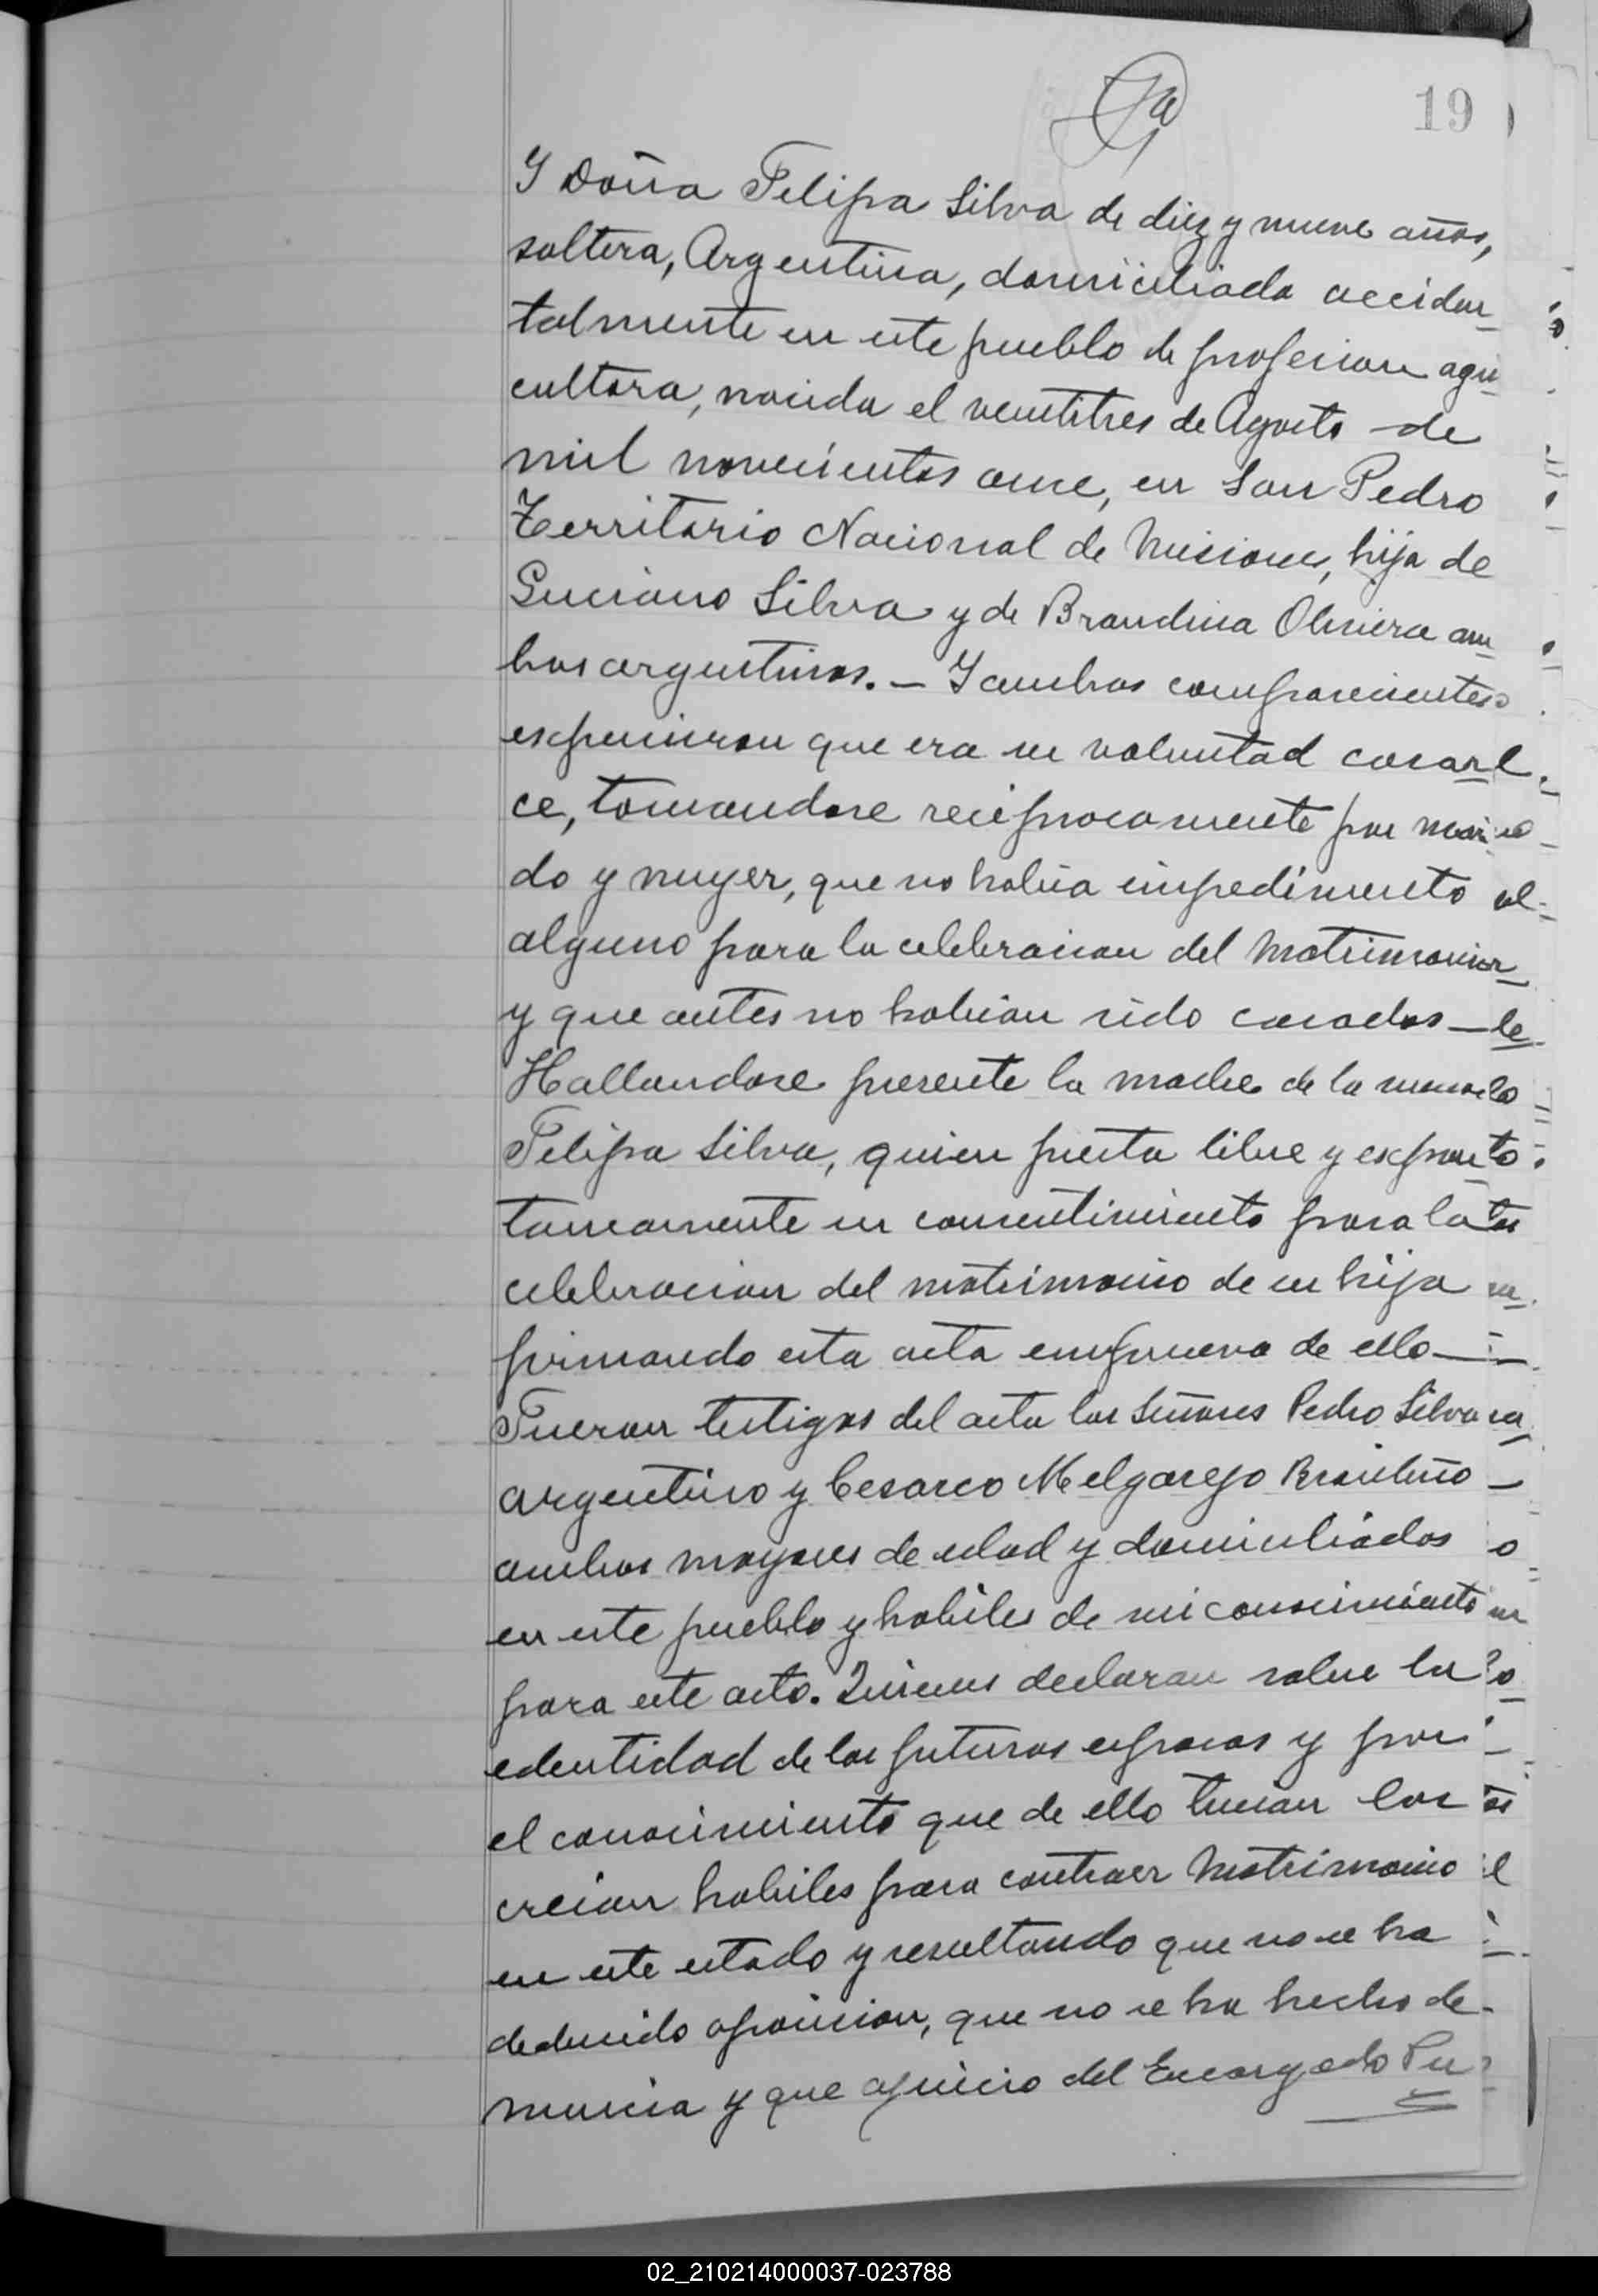 19
Y Doña Felipa Silva de diez y nueve años,
soltera, Argentina, domiciliada acciden_
talmente en este pueblo de profesion agri_
cultora, nacida el veintitres de Agosto de
mil novecientos once, en San Pedro
Territorio Nacional de Misiones, hija de
Luciano Silva y de Brandina Oliviera am_
bos argentinos. – Y ambos comparecientes
expusieron que era su voluntad casar_
ce, tomandose reciprocamente por mari_
do y muger, que no habia impedimento
alguno para la celebracion del Matrimonio
y que antes no habian sido casados —
Hallandose presente la madre de la menor
Felipa Silva, quien presta libre y expon_
taneamente su consentimiento para la
celebracion del matrimonio de su hija
firmando esta acta en prueva de ello —
Fueron testigos del acto los Señores Pedro Silva
argentino y Cesareo Melgarejo Brasileño
ambos mayores de edad y domiciliados
en este pueblo y habiles de mi conocimiento
para este acto. Quienes declaran sobre la
edentidad de los futuros esposos y por
el conocimiento que de ello tenian los
creian habiles para contraer Matrimonio
en este estado y resultando que no se ha
deducido oposicion, que no se ha hecho de-
nuncia y que ajuicio del Encargado
02_210214000037-023788